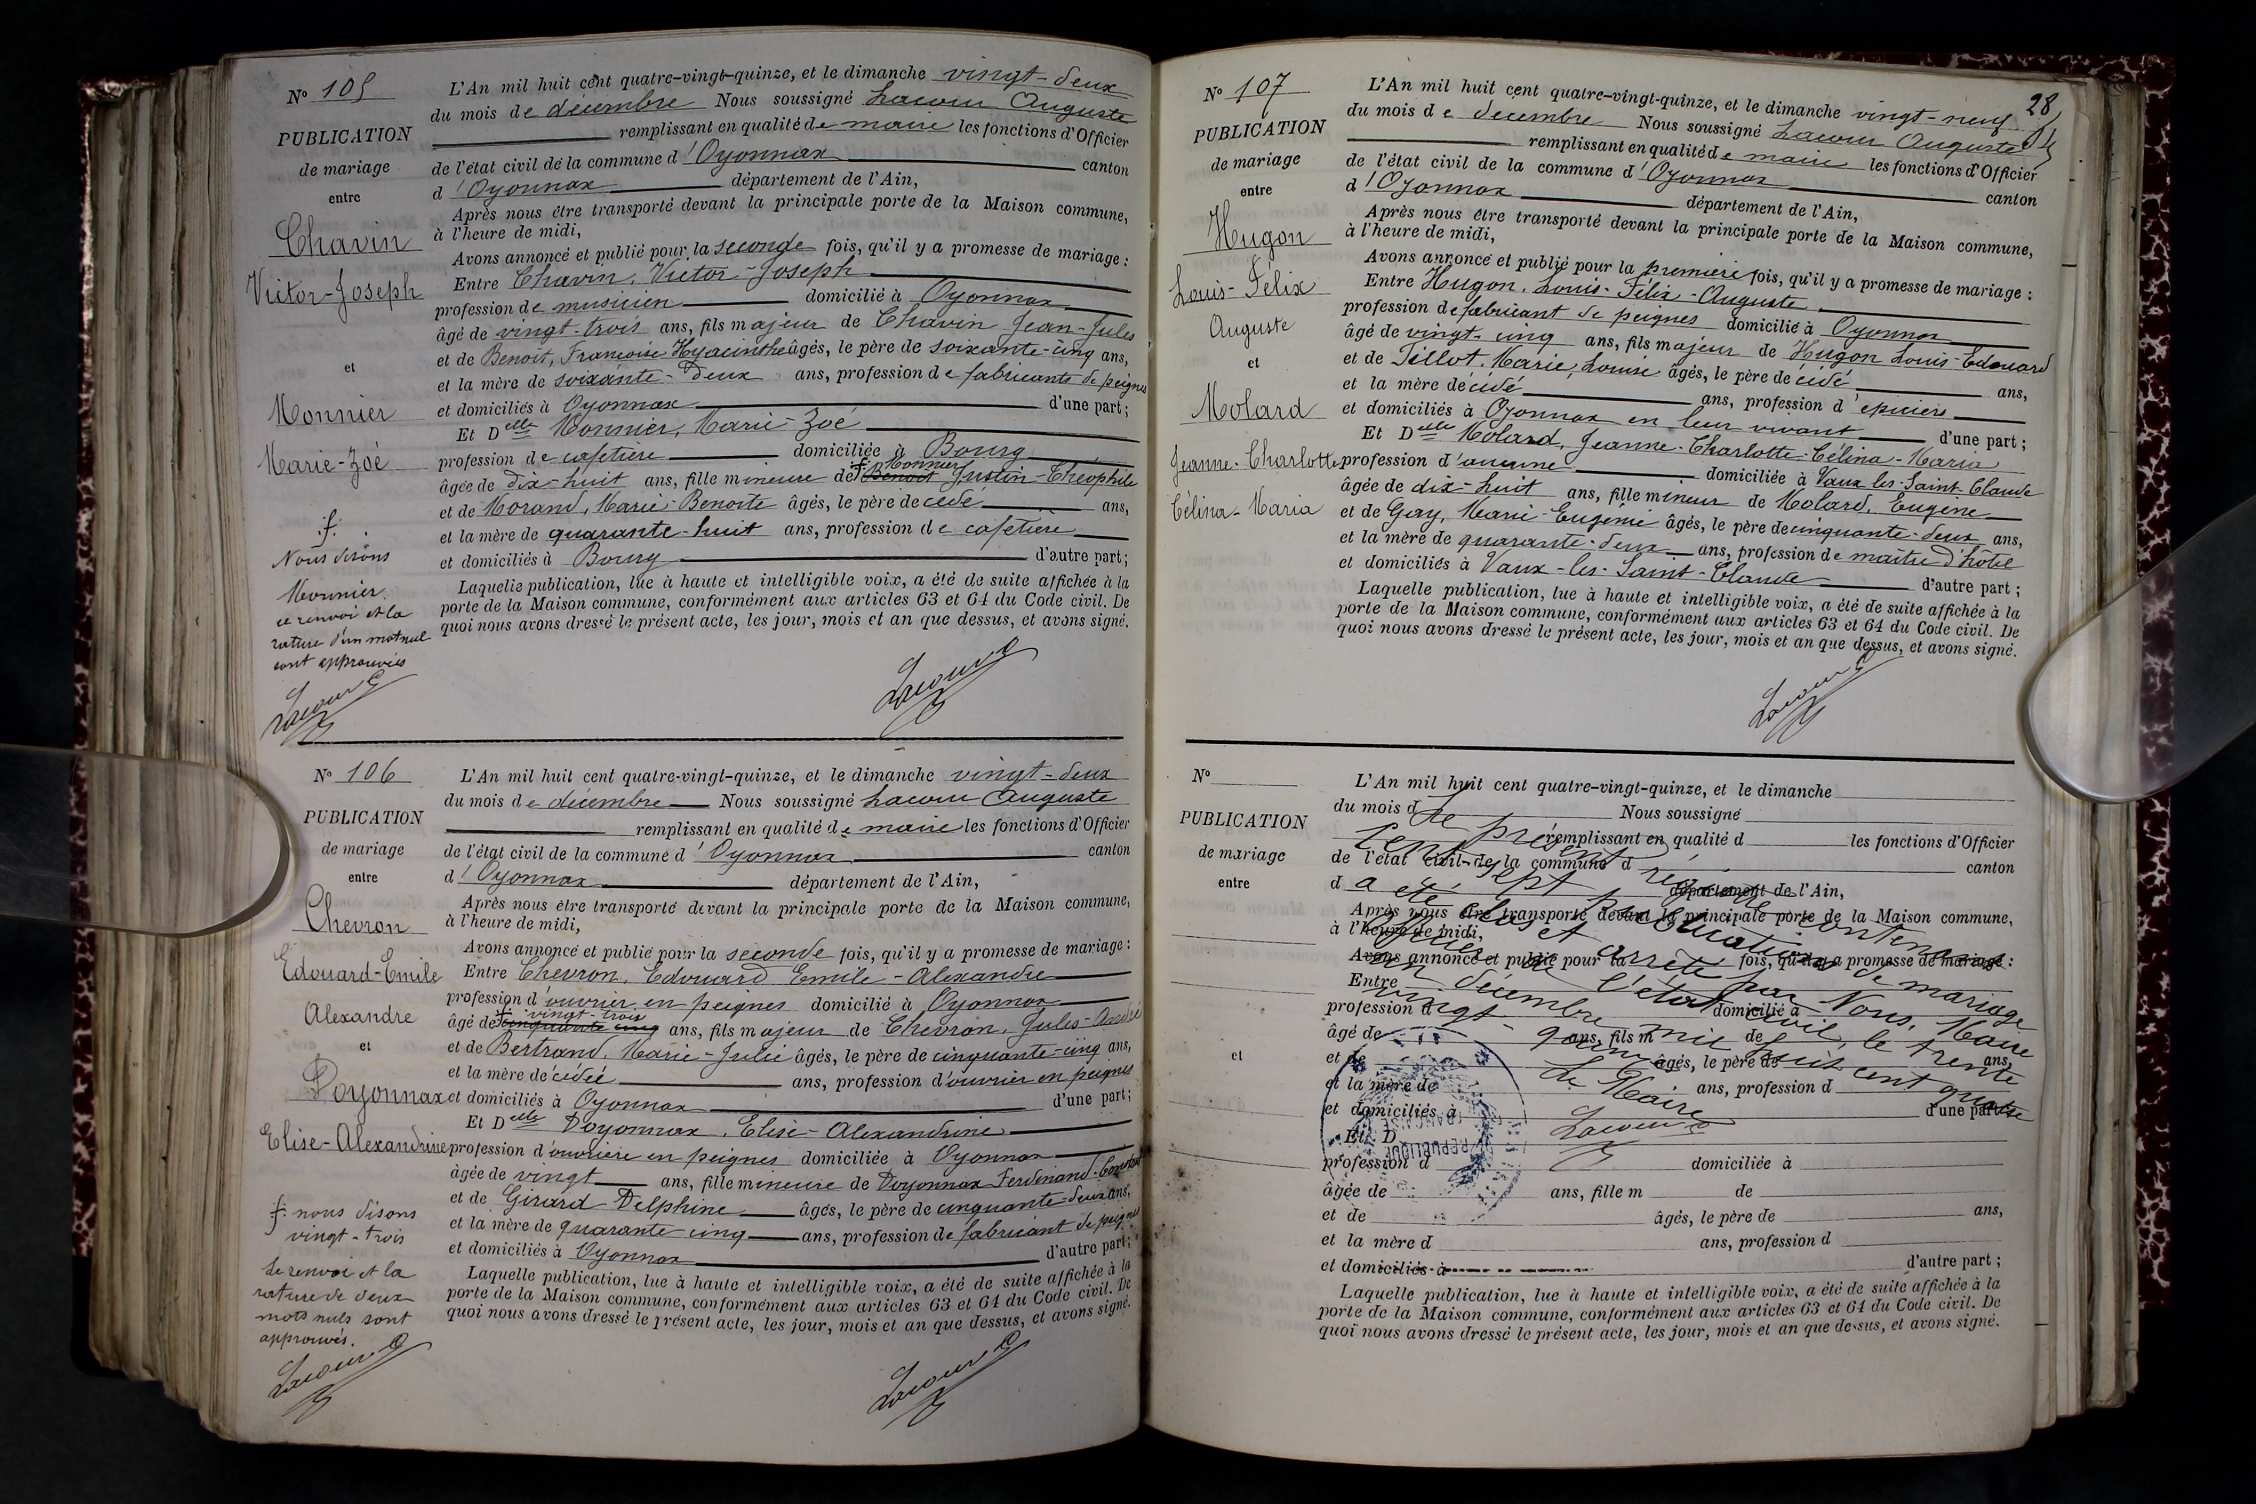 N° 105
PUBLICATION
de mariage
entre
Chavin
Victor-Joseph
et
Monnier
Marie-Zoé
Nous disons
Monnier.
ce renvoi et la
rature d'un mot nul
sont approuvés
Lacour
L'An mil huit cent quatre-vingt-quinze, et le dimanche vingt-deux
du mois de décembre Nous soussigné Lacour Auguste
remplissant en qualité de maire les fonctions d'Officier
de l'état civil de la commune d'Oyonnax canton
d'Oyonnax département de l'Ain,
Après nous être transporté devant la principale porte de la Maison commune,
à l'heure de midi,
Avons annoncé et publié pour la seconde fois, qu'il y a promesse de mariage :
Entre Chavin, Victor-Joseph
profession de musicien domicilié à Oyonnax
âgé de vingt-trois ans, fils majeur de Chavin Jean-Jules
et de Benoit, Françoise Hyacinthe âgés, le père de soixante-cinq ans,
et la mère de soixante-deux ans, profession de fabricants de peignes
et domiciliés à Oyonnax d'une part ;
Et Delle Monnier, Marie-Zoé
profession de cafetière domiciliée à Bourg
âgée de dix-huit ans, fille mineure de Benoit Monnier Justin-Théophile
et de Morand, Marie-Benoite âgés, le père décédé ans,
et la mère de quarante-huit ans, profession de cafetière
et domiciliés à Bourg d'autre part ;
Laquelle publication, lue à haute et intelligible voix, a été de suite affichée à la
porte de la Maison commune, conformément aux articles 63 et 64 du Code civil. De
quoi nous avons dressé le présent acte, les jour, mois et an que dessus, et avons signé.
Lacour
N° 106
PUBLICATION
de mariage
entre
Chevron
Edouard-Emile
Alexandre
et
Doyonnax
Elise-Alexandrine
nous disons
vingt-trois
Le renvoi et la
rature de deux
mots nuls sont
approuvés.
Lacour
L'An mil huit cent quatre-vingt-quinze, et le dimanche vingt-deux
du mois de décembre Nous soussigné Lacour Auguste
remplissant en qualité de maire les fonctions d'Officier
de l'état civil de la commune d'Oyonnax canton
d'Oyonnax département de l'Ain,
Après nous être transporté devant la principale porte de la Maison commune,
à l'heure de midi,
Avons annoncé et publié pour la seconde fois, qu'il y a promesse de mariage :
Entre Chevron, Edouard Emile-Alexandre
profession d'ouvrier en peignes domicilié à Oyonnax
âgé de cinquante cinq vingt-trois ans, fils majeur de Chevron, Jules-André
et de Bertrand, Marie-Julie âgés, le père de cinquante-cinq ans,
et la mère décédée ans, profession d'ouvrier en peignes
et domiciliés à Oyonnax d'une part ;
Et Delle Doyonnax, Elise-Alexandrine
profession d'ouvrière en peignes domiciliée à Oyonnax
âgée de vingt ans, fille mineure de Doyonnax Ferdinand-Constant
et de Girard Delphine âgés, le père de cinquante-deux ans,
et la mère de quarante cinq ans, profession de fabricant de peignes
et domiciliés à Oyonnax d'autre part ;
Laquelle publication, lue à haute et intelligible voix, a été de suite affichée à la
porte de la Maison commune, conformément aux articles 63 et 64 du Code civil. De
quoi nous avons dressé le présent acte, les jour, mois et an que dessus, et avons signé.
Lacour
28
N° 107
PUBLICATION
de mariage
entre
Hugon
Louis-Félix
Auguste
et
Molard
Jeanne-Charlotte
Célina-Maria
L'An mil huit cent quatre-vingt-quinze, et le dimanche vingt-neuf
du mois de décembre Nous soussigné Lacour Auguste
remplissant en qualité de maire les fonctions d'Officier
de l'état civil de la commune d'Oyonnax canton
d'Oyonnax département de l'Ain,
Après nous être transporté devant la principale porte de la Maison commune,
à l'heure de midi,
Avons annoncé et publié pour la première fois, qu'il y a promesse de mariage :
Entre Hugon, Louis-Félix-Auguste
profession de fabricant de peignes domicilié à Oyonnax
âgé de vingt-cinq ans, fils majeur de Hugon Louis-Edouard
et de Tillot, Marie, Louise âgés, le père décédé ans,
et la mère décédé ans, profession d'épiciers
et domiciliés à Oyonnax en leur vivant d'une part ;
Et Delle Molard, Jeanne-Charlotte-Célina-Maria
profession d'aucune domiciliée à Vaux-les-Saint-Claude
âgée de dix-huit ans, fille mineur de Molard, Eugène
et de Gay, Marie-Eugénie âgés, le père de cinquante-deux ans,
et la mère de quarante-deux ans, profession de maître d'hôtel
et domiciliés à Vaux-les-Saint-Claude d'autre part ;
Laquelle publication, lue à haute et intelligible voix, a été de suite affichée à la
porte de la Maison commune, conformément aux articles 63 et 64 du Code civil. De
quoi nous avons dressé le présent acte, les jour, mois et an que dessus, et avons signé.
Lacour
N°
PUBLICATION
de mariage
entre
et
L'An mil huit cent quatre-vingt-quinze, et le dimanche
du mois d Nous soussigné
remplissant en qualité d les fonctions d'Officier
de l'état civil de la commune d canton
d département de l'Ain,
Après nous être transporté devant la principale porte de la Maison commune,
à l'heure de midi,
Avons annoncé et publié pour la fois, qu'il y a promesse de mariage :
Entre
profession d domicilié à
âgé de ans, fils m de
et de âgés, le père de ans,
et la mère de ans, profession d
et domiciliés à d'une part
Et D
profession d domiciliée à
âgée de ans, fille m de
et de âgés, le père de ans,
et la mère d ans, profession d
et domiciliés à d'autre part ;
Laquelle publication, lue à haute et intelligible voix, a été de suite affichée à la
porte de la Maison commune, conformément aux articles 63 et 64 du Code civil. De
quoi nous avons dressé le présent acte, les jour, mois et an que dessus, et avons signé.
Le présent registre contenant
cent sept publications de mariage
a été clos et arrêté par Nous, Maire
officier de l'état civil, le trente
un décembre mil huit cent quatre
vingt-quinze
Le Maire
Lacour
RÉPUBLIQUE